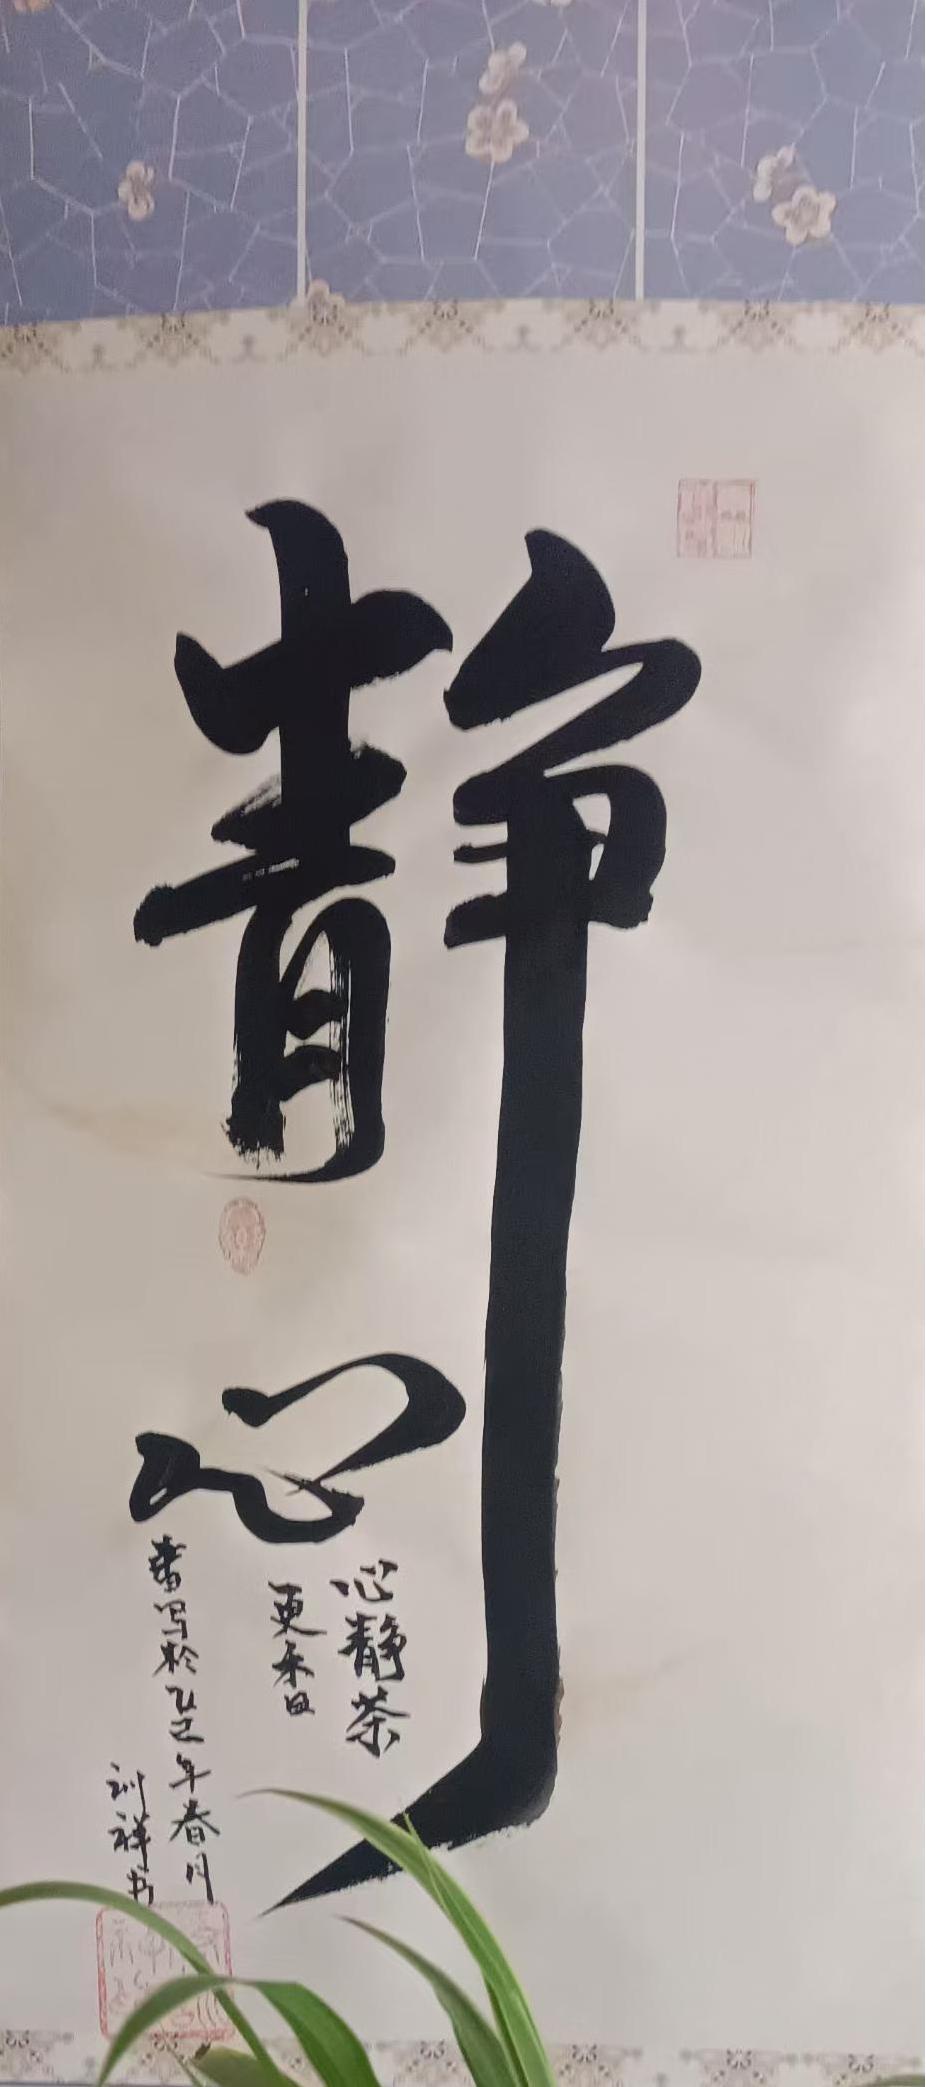 静心
心静茶
更香
書写於乙巳年春月
训祥书